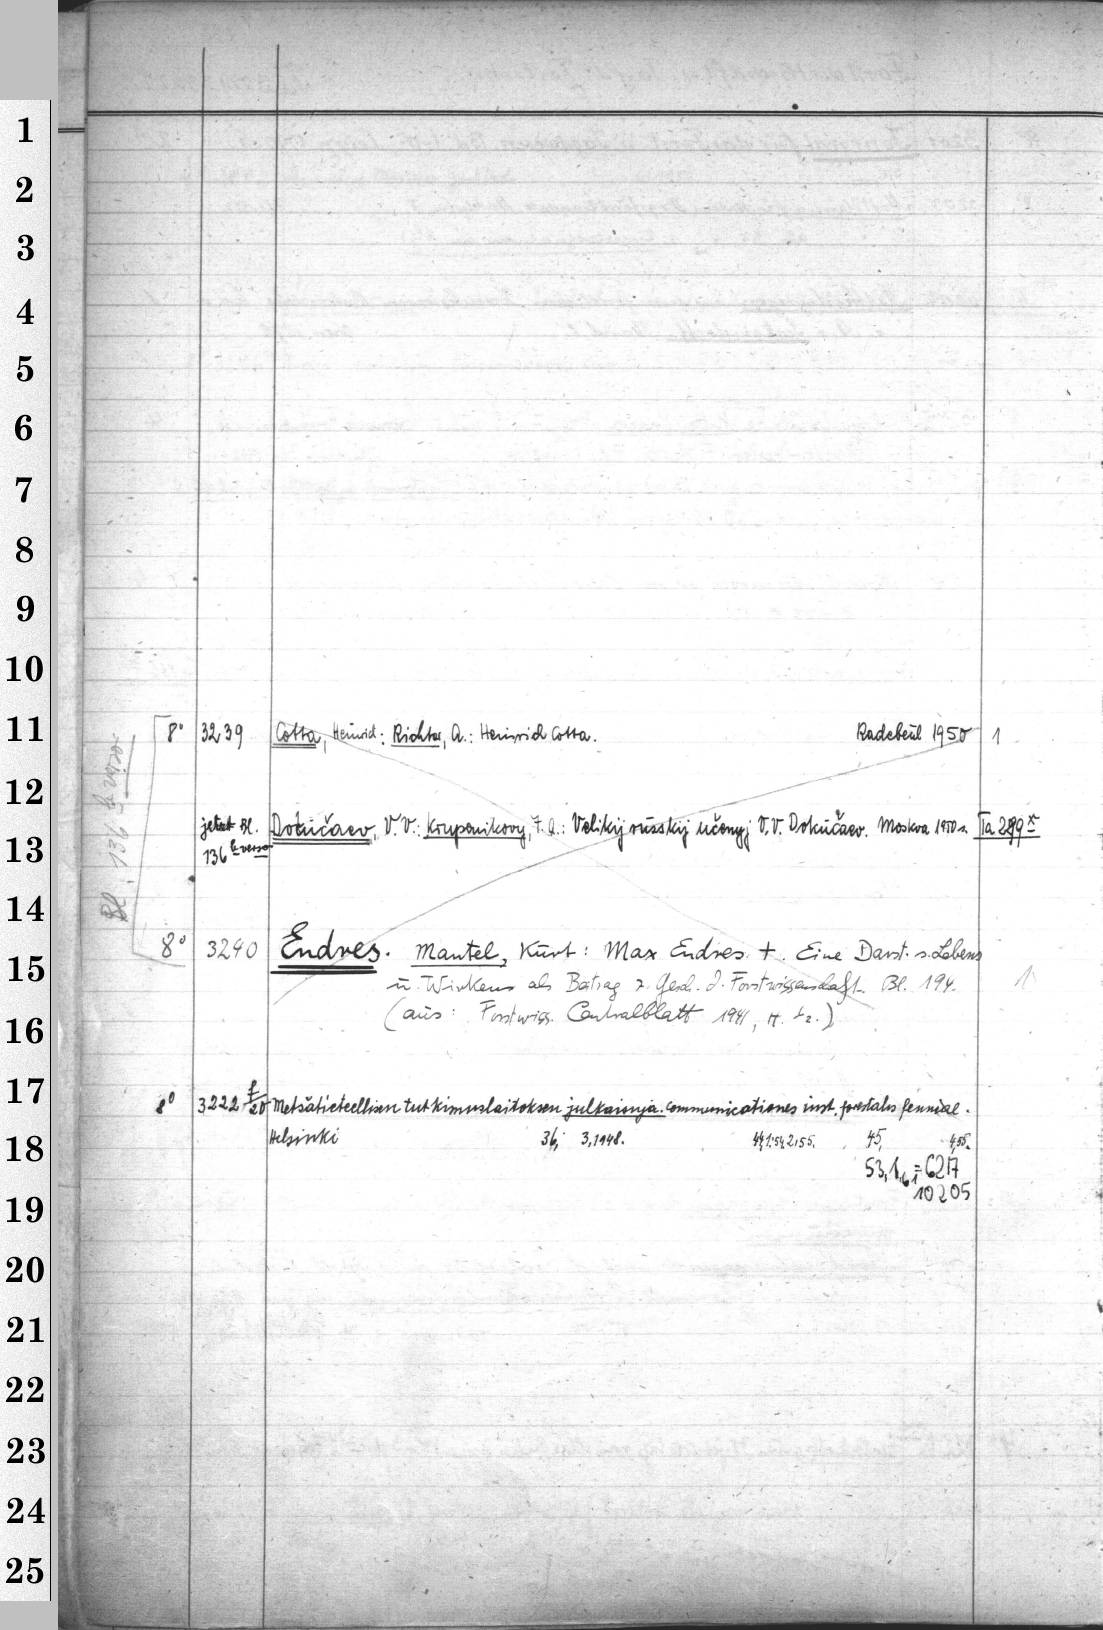 1
2
3
4
5
6
7
8
9
10
11
12
13
14
15
16
17
18
19
20
21
22
23
24
25
Bl. 136 g verso
8° 3239 Cotta, Heinrich: Richter, A.: Heinrich Cotta. Radebeul 1950 1
jetzt Bl. Dokučaev, V. V.: Krupenikovy, F. A.: Velikij russkij učenyj V. V. Dokučaev. Moskva 1950 8. Ta 289 x
136 verso
8° 3240 Endres. Mantel, Kurt: Max Endres †. Eine Darst. s. Lebens
u. Wirkens als Beitrag z. Gesch. d. Forstwissenschaft. Bl. 194. 1
(aus: Forstwiss. Centralblatt 1941, H. 1/2.)
8° 3222 f/20 Metsätieteellisen tutkimuslaitoksen julkaisuja. Communicationes inst. forestalis fenniae.
Helsinki 36, 3,1948. 44,1.54,2,55. 45, 4,55.
53,1,61 = 6217
10205